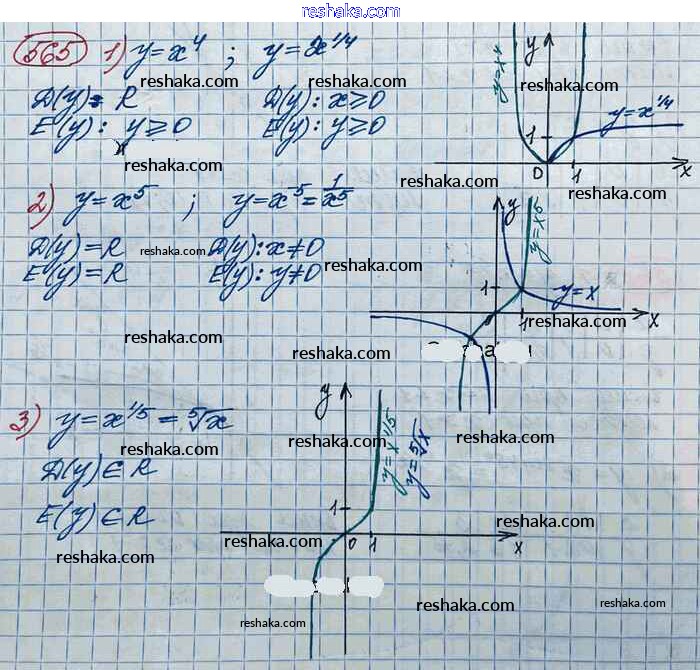 reshaka.com
565 1) y=x⁴ ; y=x^1/4
reshaka.com
reshaka.com
D(y)= R D(y): x≥0
E(y): y≥0 E(y): y≥0
reshaka.com
y
y=x⁴
y=x^1/4
1
0 1 x
reshaka.com
reshaka.com
2) y=x⁵ ; y=x⁻⁵=1/x⁵
D(y)=R reshaka.com D(y): x≠0
E(y)=R E(y): y≠0
reshaka.com
reshaka.com
reshaka.com
y
y=x⁵
1
y=x
1 reshaka.com x
3) y=x^1/5=⁵√x
reshaka.com
D(y)∈R
E(y)∈R
reshaka.com
reshaka.com
y
y=x^1/5
y=⁵√x
reshaka.com
1
0 1 x
reshaka.com
reshaka.com
reshaka.com
reshaka.com
reshaka.com